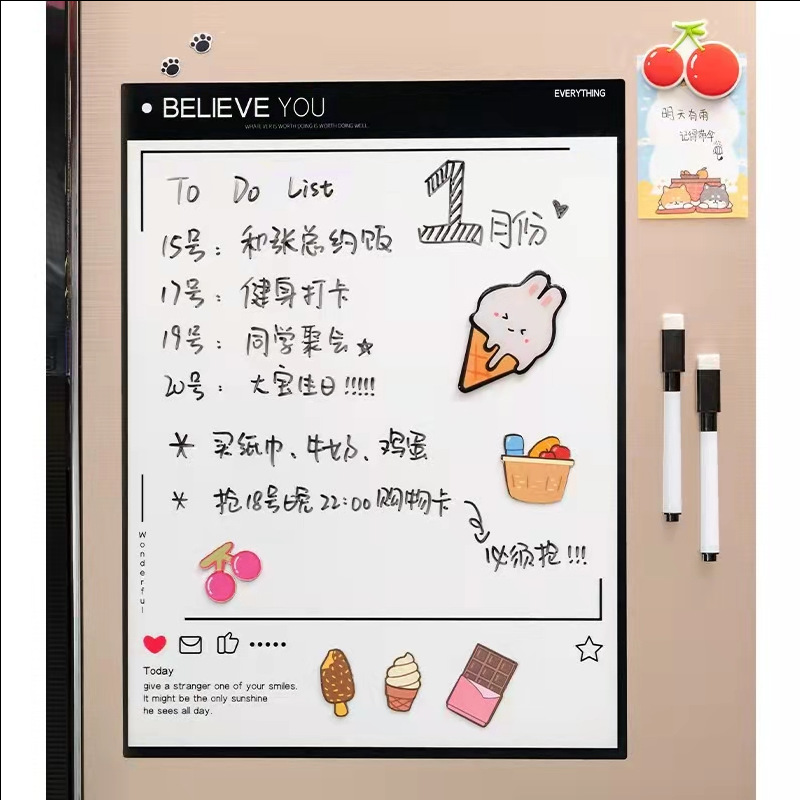 BELIEVE YOU
EVERYTHING
WHATEVER IS WORTH DOING IS WORTH DOING WELL.
To Do List
1月份
15号：和张总约饭
17号：健身打卡
19号：同学聚会
20号：大宝生日!!!!!
* 买纸巾、牛奶、鸡蛋
* 抢18号晚22:00购物卡
必须抢!!!
Wonderful
Today
give a stranger one of your smiles.
It might be the only sunshine
he sees all day.
明天有雨
记得带伞